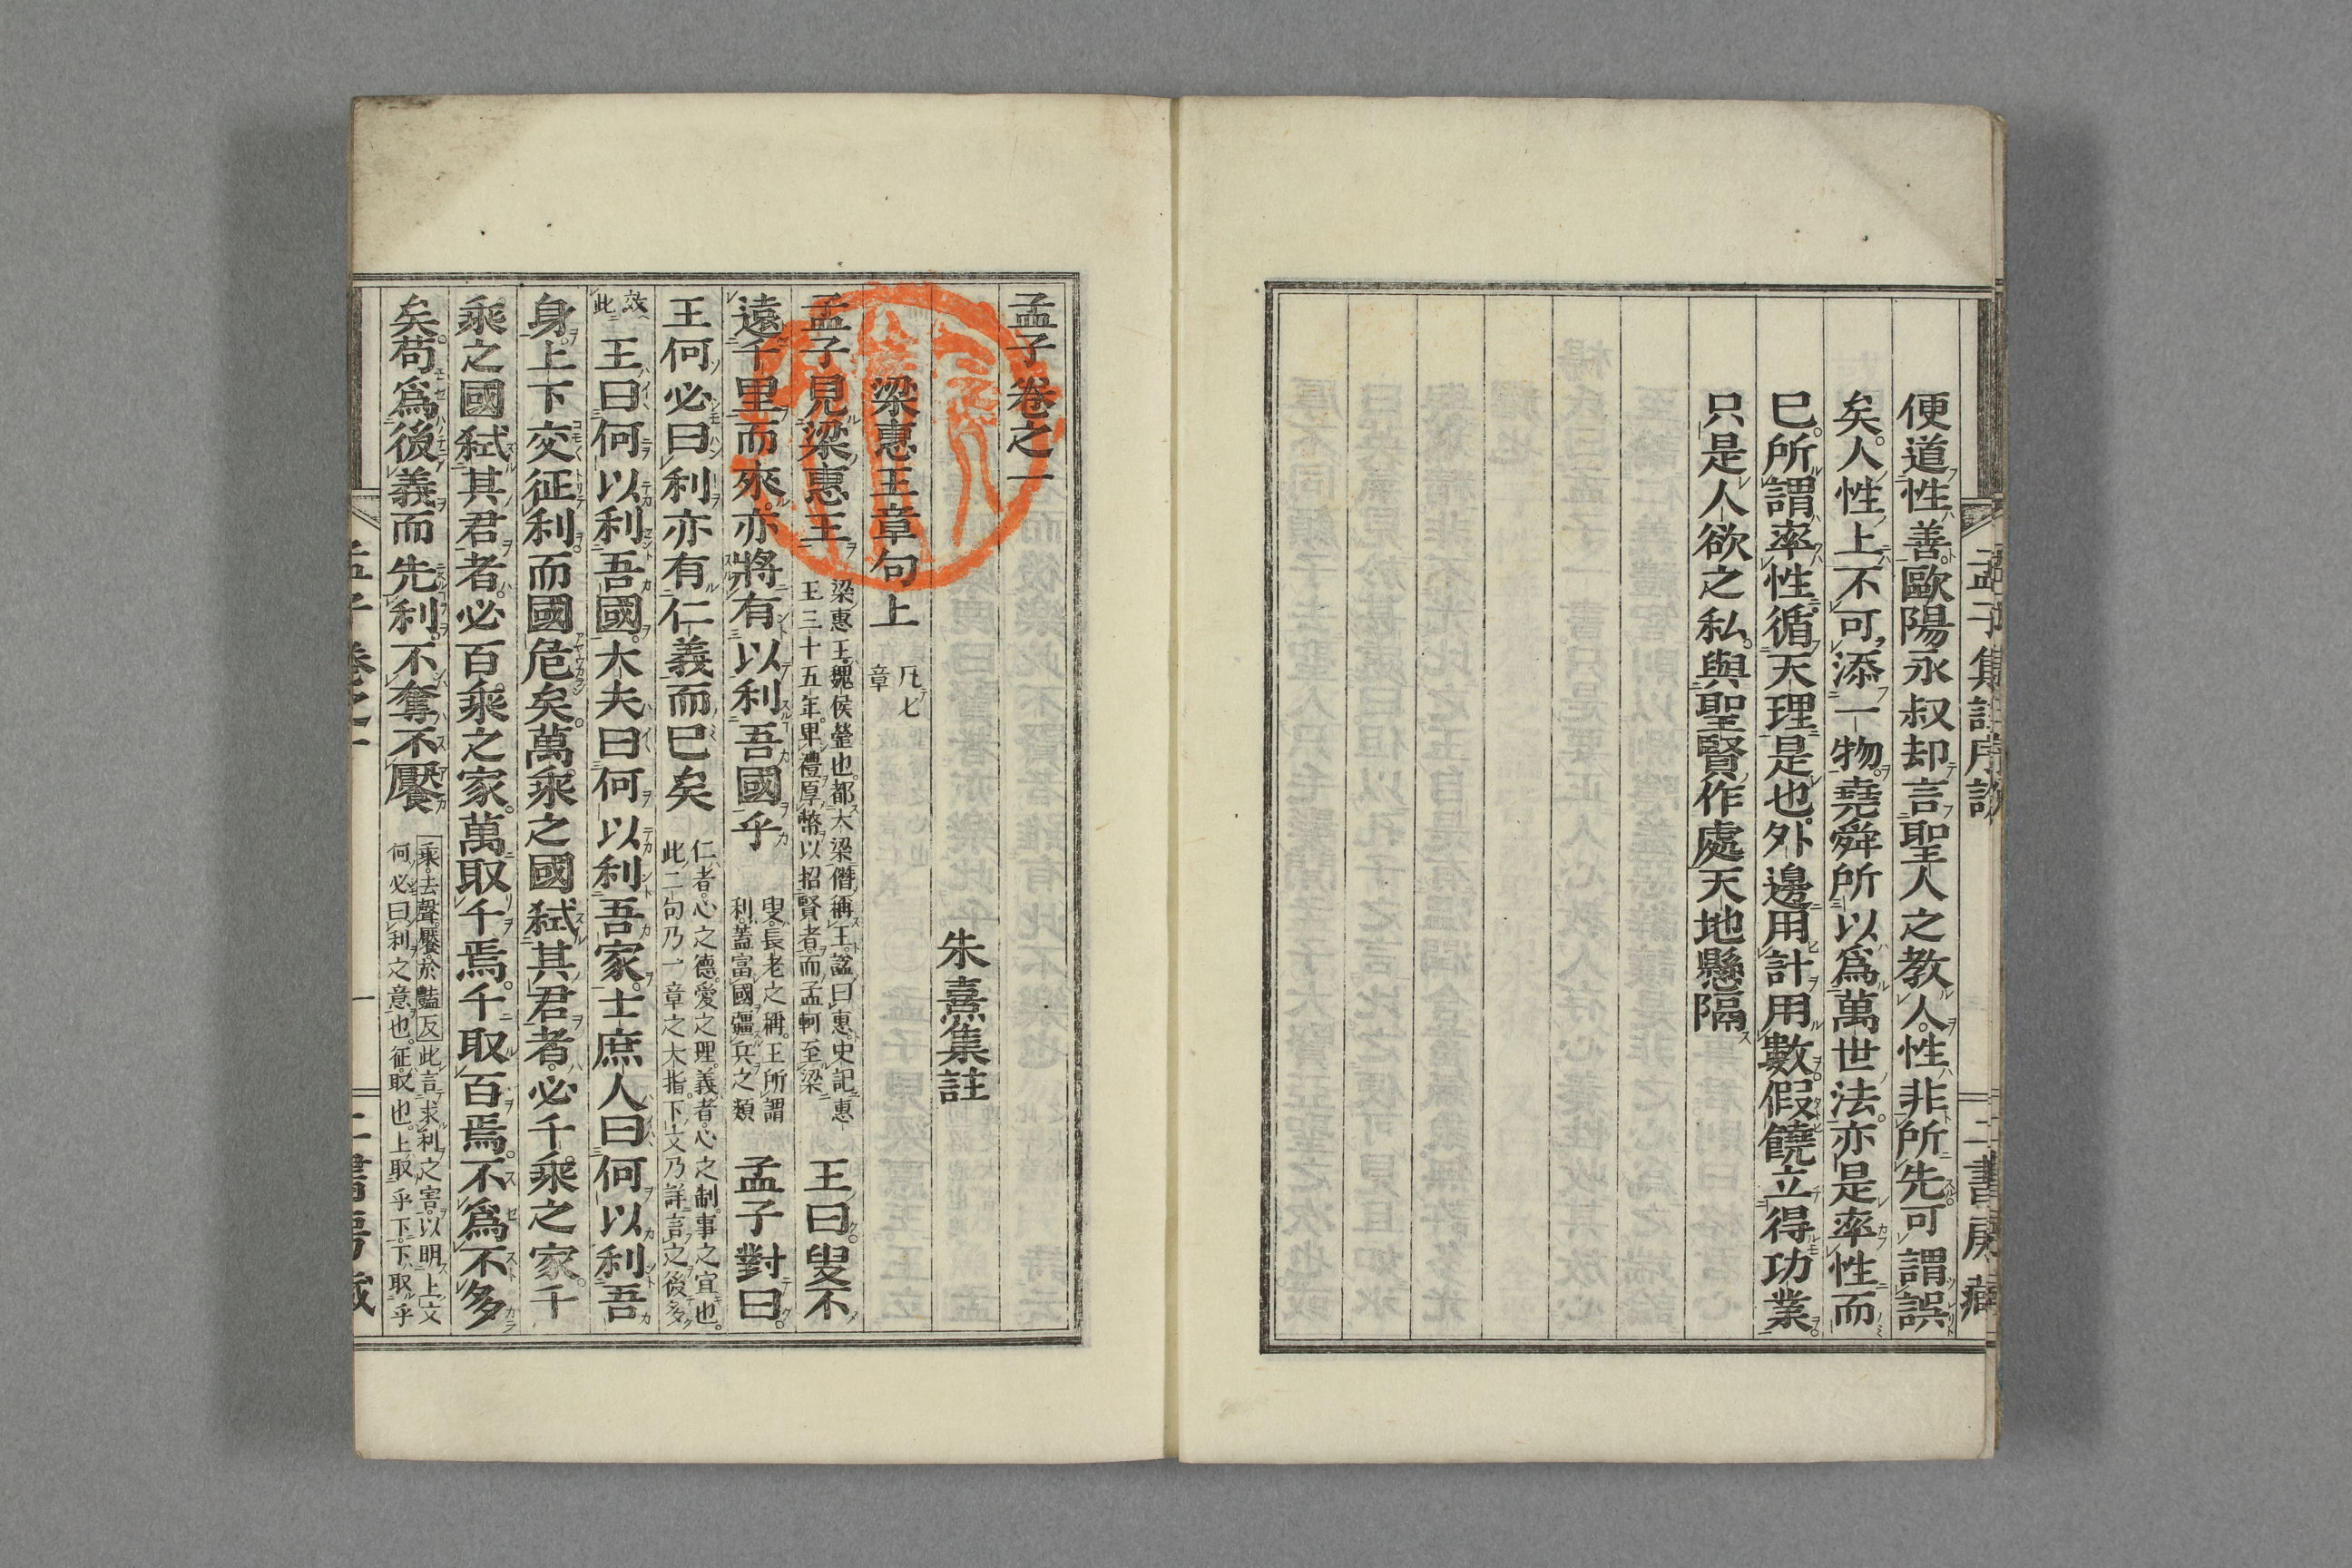 便道性善歐陽永叔却言聖人之教人性非所先可謂誤
矣人性上不可添一物堯舜所以爲萬世法亦是率性而
已所謂率性循天理是也外邊用計用數假饒立得功業
只是人欲之私與聖賢作處天地懸隔
孟子卷之一
朱熹集註
梁惠王章句上 凡七
章
孟子見梁惠王 梁惠王魏侯罃也都大梁僭稱王諡曰惠史記惠
王三十五年卑禮厚幣以招賢者而孟軻至梁 王曰叟不
遠千里而來亦將有以利吾國乎 叟長老之稱王所謂
利蓋富國彊兵之類 孟子對曰
王何必曰利亦有仁義而已矣 仁者心之德愛之理義者心之制事之宜也
此二句乃一章之大指下文乃詳言之後多
效
此 王曰何以利吾國大夫曰何以利吾家士庶人曰何以利吾
身上下交征利而國危矣萬乘之國弒其君者必千乘之家千
乘之國弒其君者必百乘之家萬取千焉千取百焉不爲不多
矣苟爲後義而先利不奪不饜 乘去聲饜於豔反此言求利之害以明上文
何必曰利之意也征取也上取乎下下取乎